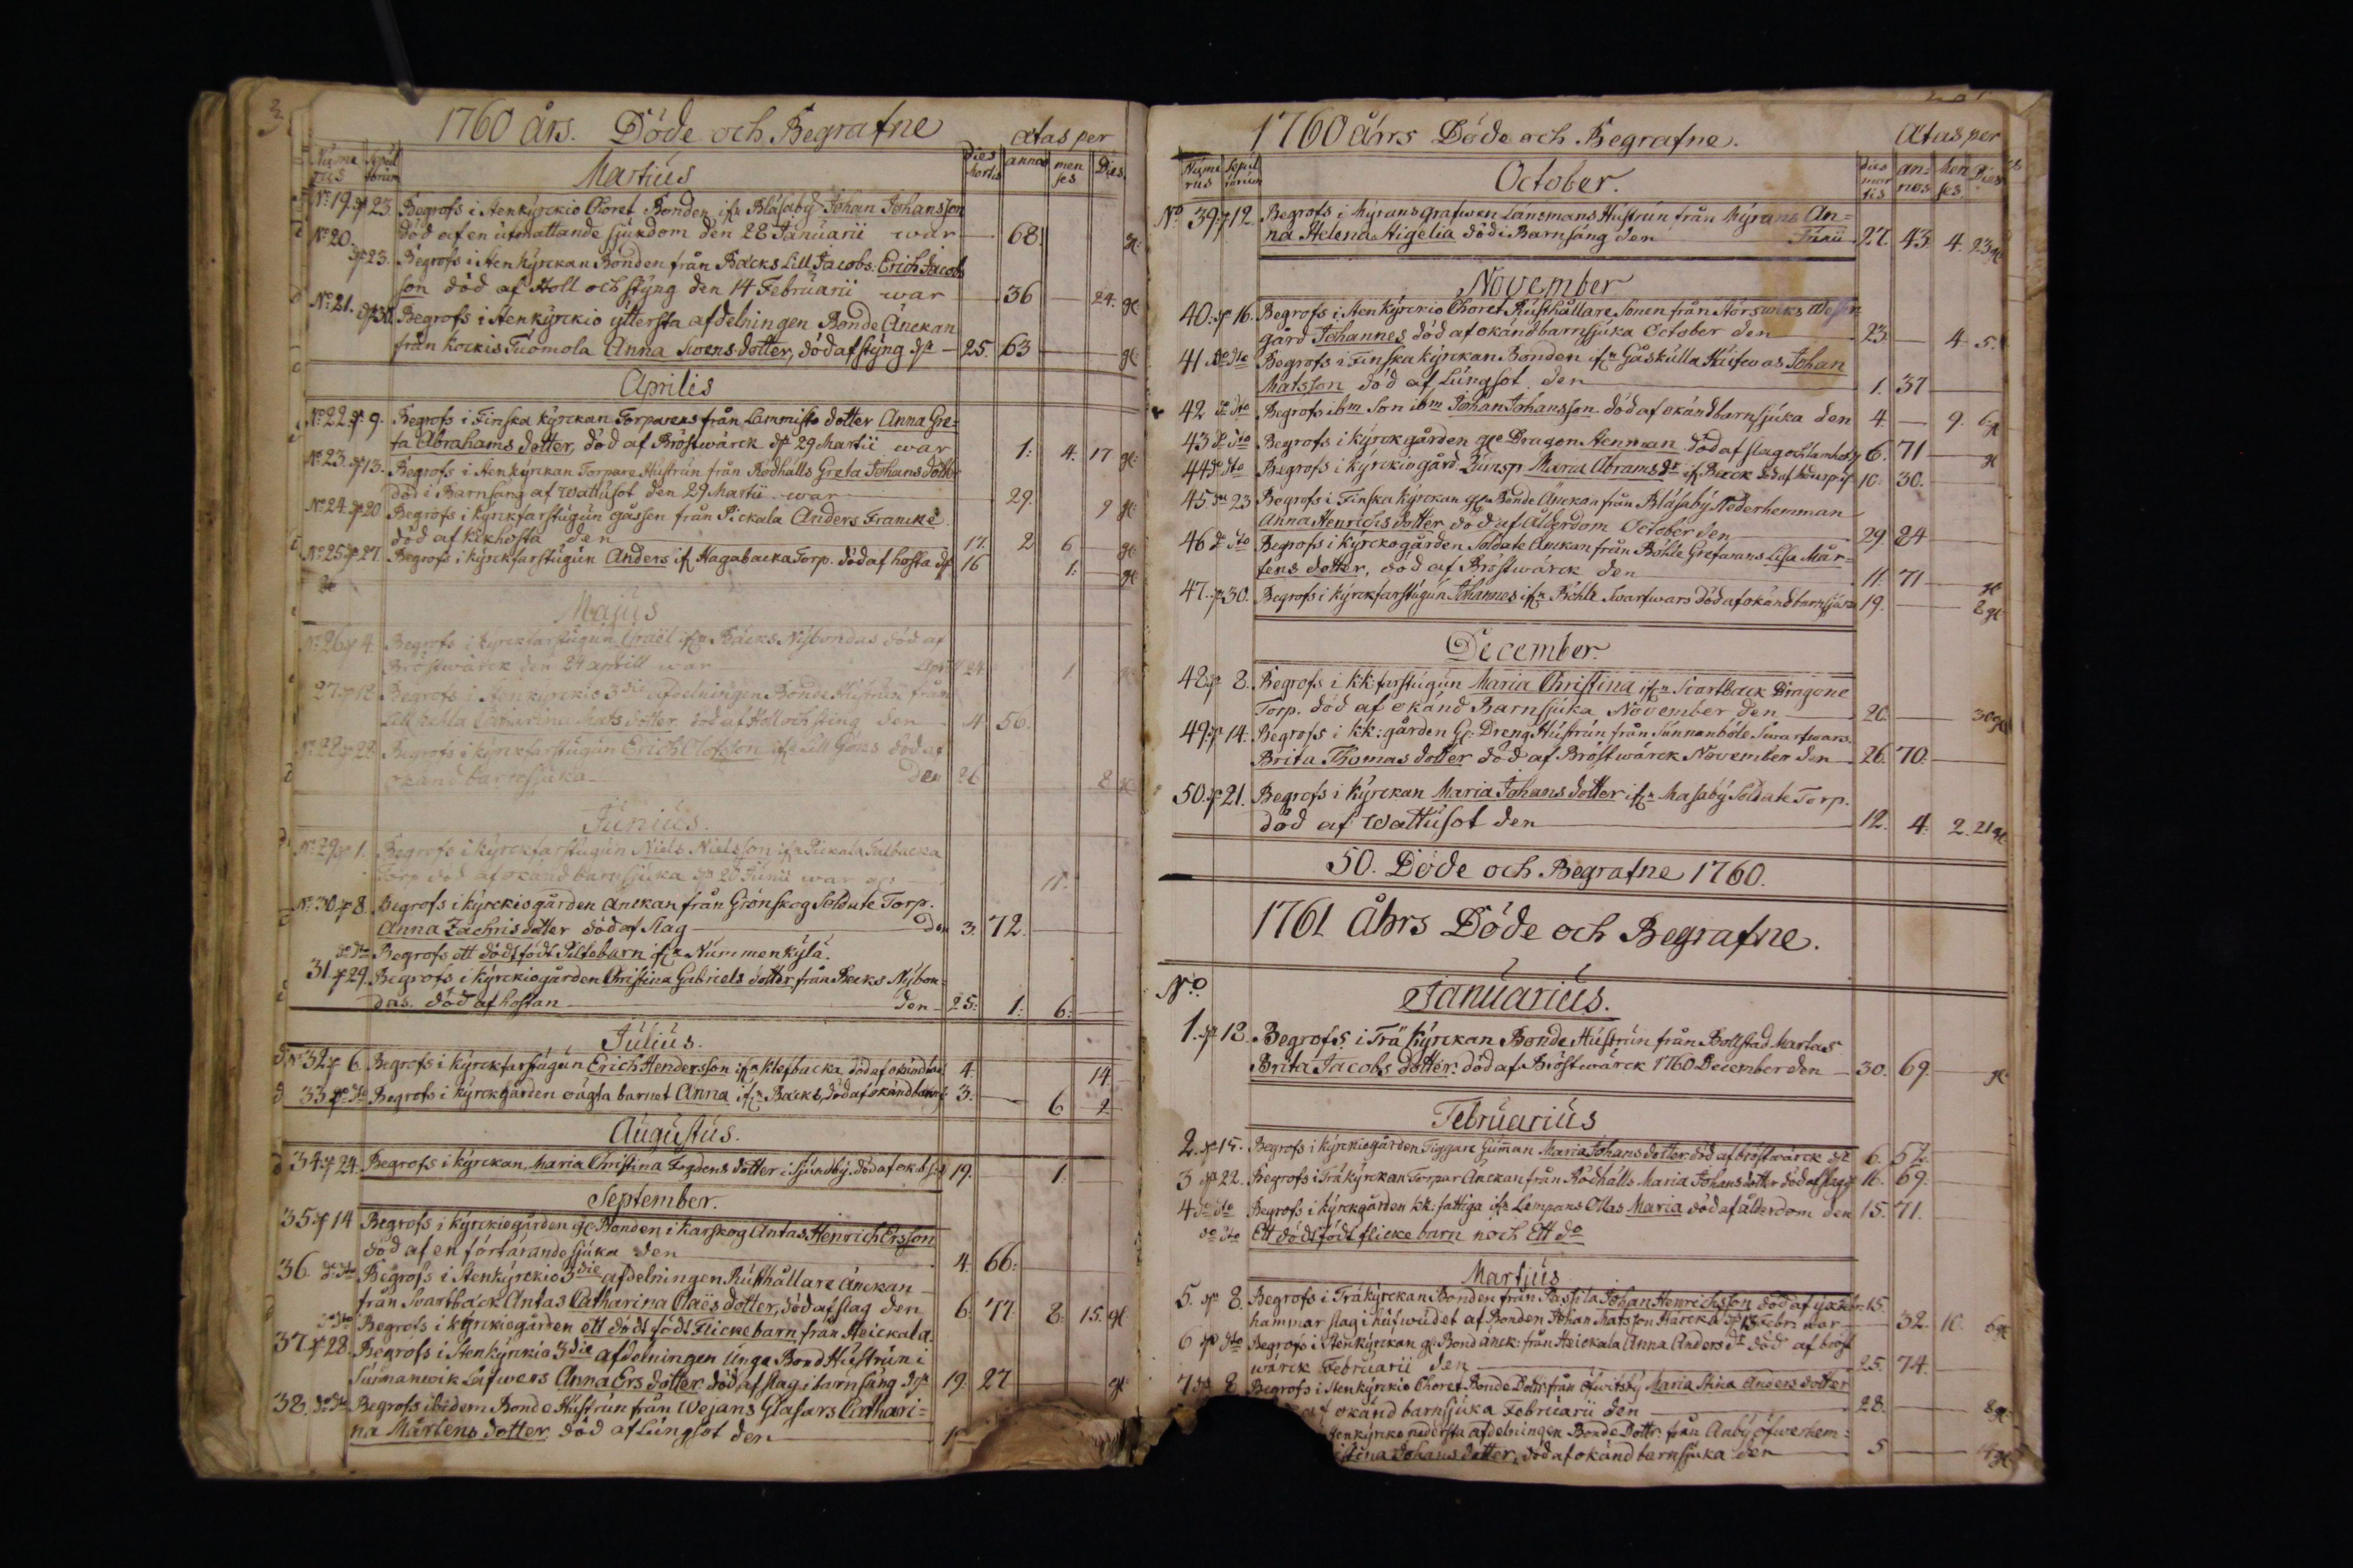 3
1760 års. Döde och Begrafne
ætas per
Nume rus
Sepul torum
Martius
Dies Mortis
annos
men ses
Dies
No 19. 23. Begrofs i Stenkyrckio Choret Bonden ifn Blåsaby Johan Johansson
död af en utmattande sjukdom den 28 Januarii war 68
No 20. 23. Begrofs i Stenkyrckan Bonden från Backs Lill Jacobs: Erich Jacobs
son död af Holl och styng den 14 Februarii war 36 24. gl
No 21. 30. Begrofs i Stenkyrckio yttersta afdelningen Bonde Änckan
från Kockis Tuomola Anna Swens dotter, död af styng 25. 63 gl
Aprilis
No 22. 9. Begrofs i Finska kyrckan Torparens från Lammisto dotter Anna Gre=
ta Abrahams dotter, död af Bröstwärck 29 Martii war 1: 4. 17 gl:
No 23. 13. Begrofs i Stenkyrckan Torpare Hustrun från Rödhälls Greta Johans dotter
död i Barnsäng af wattusot den 29 Martii war 29. 9 gl:
No 24. 20 Begrofs i kyrckfarstugun gåssen från Pickala Anders Francke
död af kikhosta den 17. 2 6 gl
No 25. 27. Begrofs i kyrckfarstugun Anders if Hagabacka Torp. död af hosta 16 1: gl
Majus
No 26. 4. Begrofs i kyrckfarstugun Israël ifn Backs Nybondas död af
Bröstwärck den 24 aprill war 24 1
27. 18 Begrofs i Stenkyrckio 3die afdelningen Bonde Hustrun från
Lill Catharina Mats dotter död af Holl och sting den 4 56.
No 28. 22 Begrofs i kyrckfarstugun Erich Olofsson ifn Lill Göks död af
okänd barnsjuka den 26 8
Junius.
No 29. 1. Begrofs i kyrckfarstugun Niels Nielsson ifn Pickala Talbacka
Torp död af okänd barnsjuka 20 Junii war 11.
No 30. 8. Begrofs i kyrckiogården änckan från Grönskog Soldate Torp.
Anna Zachris dotter död af slag den 3. 72.
do dto Begrofs ett dödfödt Piltebarn ifn Nummenkylä.
31. 29. Begrofs i kyrckiogården Christina Gabriels dotter från Backs Nybon=
das. död af hostan den 25: 1: 6:
Julius.
No 32. 6. Begrofs i kyrckfarstugun Erich Hendersson ifn Klefbacka, död af okänd 4. 14.
33. do dto Begrofs i kyrckgården oägta barnet Anna ifn Backs, död af okänd 3. 6 2
Augustus.
34. 24. Begrofs i kyrckan Maria Christina Fogdens dotter i Sjundby. död af 19. 1.
September.
35. 14 Begrofs i kyrckiogården gl: Bonden i Karskog Antas Henrich Ersson
död af en förtärande sjuka den 4. 66:
36. do dto Begrofs i Stenkyrckio 3die afdelningen Rusthållare änckan
från Svartback Antas Catharina Claës dotter, död af slag den 6. 77. 8: 15. gl
do dto Begrofs i kyrckiegården ett död födt Flickebarn från Heickala.
37. 28. Begrofs i Stenkyrckio 3die afdelningen unga Bond Hustrun i
Sunnanwik Lafwers Anna Ers dotter död af slag i barnsäng 19. 27 gl
38. do dto Begrofs ibidem Bonde Hustrun från Wejans Glasars Cathari=
na Mårtens dotter död af Lungsot den
1760 åhrs Döde och Begrafne.
Ætas per
Nume rus
Sepul torum
October.
dies mor tis
an= nos
Men ses.
Dies
No 39. 12. Begrofs i Myrans grafwen Länsmans Hustrun från Myrans An=
na Helena Higelia död i Barnsäng den Junii 27. 43 4. 23 gl
November
40. 16. Begrofs i Stenkyrckio Choret Rusthållare Sonen från Störswiks
gård Johannes död af okänd barnsjuka October den 23. 4 5.
41 do dto Begrofs i Finska kyrckan Bonden ifn Gåskulla Hufwas Johan
Matsson död af Lungsot den 1. 37
42 do dto Begrofs ibm Son ibm Johan Johansson död af okänd barnsjuka den 4. 9. 6 gl
43 do dto Begrofs i kyrckgården gle Dragon Stenman död af slag och 6. 71 gl
44 do dto Begrofs i kyrckiogård Jumfr Maria Abrams dr if Back död af 10. 30.
45. 23 Begrofs i Finska kyrckan gl Bonde Änckan från Blåsaby Nederhemman
Anna Henrichs dotter död af ålderdom October den 29. 84
46 do dto Begrofs i kyrckogården Soldate Änckan från Böhle Grefarans Lisa Mår=
tens dotter, död af Bröstwärck den 11. 71 gl
47. 30. Begrofs i kyrckfarstugun Johannes ifn Böhle Swartwars död af okänd barnsjuka 19. 8 gl
December.
48. 8. Begrofs i kk: farstugun Maria Christina ifn Svartback Dragone
Torp. död af okänd Barnsjuka November den 20. 30 gl
49. 14. Begrofs i kk: gården Gl: Dreng Hustrun från Sunnanböle Swartwars.
Brita Thomas dotter död af Bröstwärck November den 26. 70.
50. 21. Begrofs i kyrckan Maria Johans dotter ifn Masaby Soldate Torp.
död af Wattusot den 12. 4. 2. 21 gl
50. Döde och Begrafne 1760.
1761 Åhrs Döde och Begrafne.
No
Januarius.
1. 18. Begrofs i Trä kyrckan Bonde Hustrun från Bollstad Martas
Brita Jacobs dotter. död af Bröstwärck 1760 December den 30. 69. gl
Februarius
2. 15. Begrofs i kyrckiogården Tiggare Gumman Maria Johans dotter. död af bröstwärck 6. 52.
3 22. Begrofs i Träkyrckan Torpar Änckan från Rödhälls Maria Johans dotter död af slag 16. 69.
4 do dto Begrofs i kyrckgården kk: fattiga ifn Lempans Ollas Maria död af ålderdom den 15. 71.
do dto Ett dödtfödt flicke barn noch Ett do
Martius
5. 8. Begrofs i Träkyrckan Bonden från Pastila Johan Henrichsson död af yxe 15.
hammar slag i hufwudet af Bonden Johan Matsson Härcka 15 Febr: war 32. 10. 6 gl
6 dto Begrofs i Stenkyrckan gl: Bond änck: från Heickala Anna Anders dr död af bröst
wärck Februarii den 25. 74.
7 8 Begrofs i Stenkyrckio Choret Bonde Dottr från Öfwitsby Maria Stina Anders dotter
af okänd barnsjuka Februarii den 28. 8 gl
Stenkyrckio nedersta afdelningen Bonde Dottr: från Anby öfwerhem=
istina Johans dotter, död af okänd barnsjuka den 5 gl